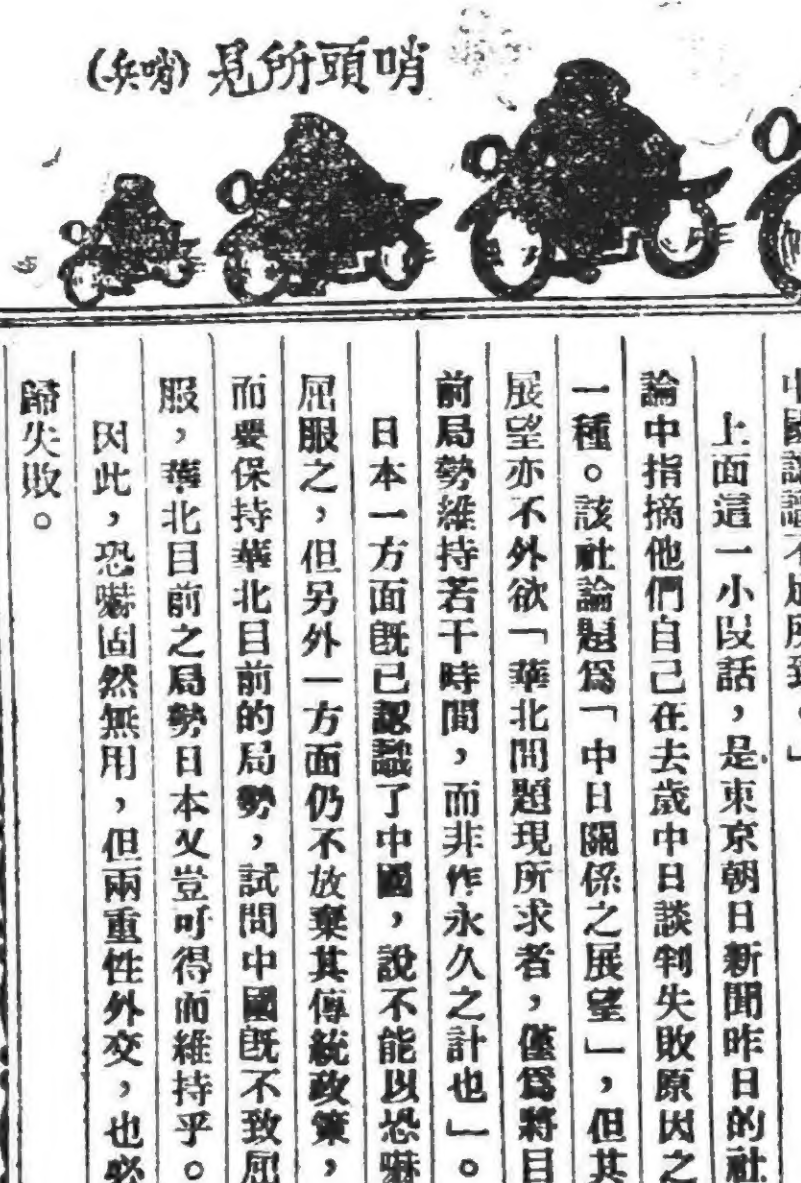 哨頭所見(哨兵)
上面這一小段話，是東京朝日新聞昨日的社
論中指摘他們自己在去歲中日談判失敗原因之
一種。該社論題爲「中日關係之展望」，但其
展望亦不外欲「華北問題現所求者，僅爲將目
前局勢維持若干時間，而非作永久之計也」。
日本一方面既已認識了中國，說不能以恐嚇
屈服之，但另外一方面仍不放棄其傳統政策，
而要保持華北目前的局勢，試問中國既不致屈
服，華北目前之局勢日本又豈可得而維持乎。
因此，恐嚇固然無用，但兩重性外交，也必
歸失敗。